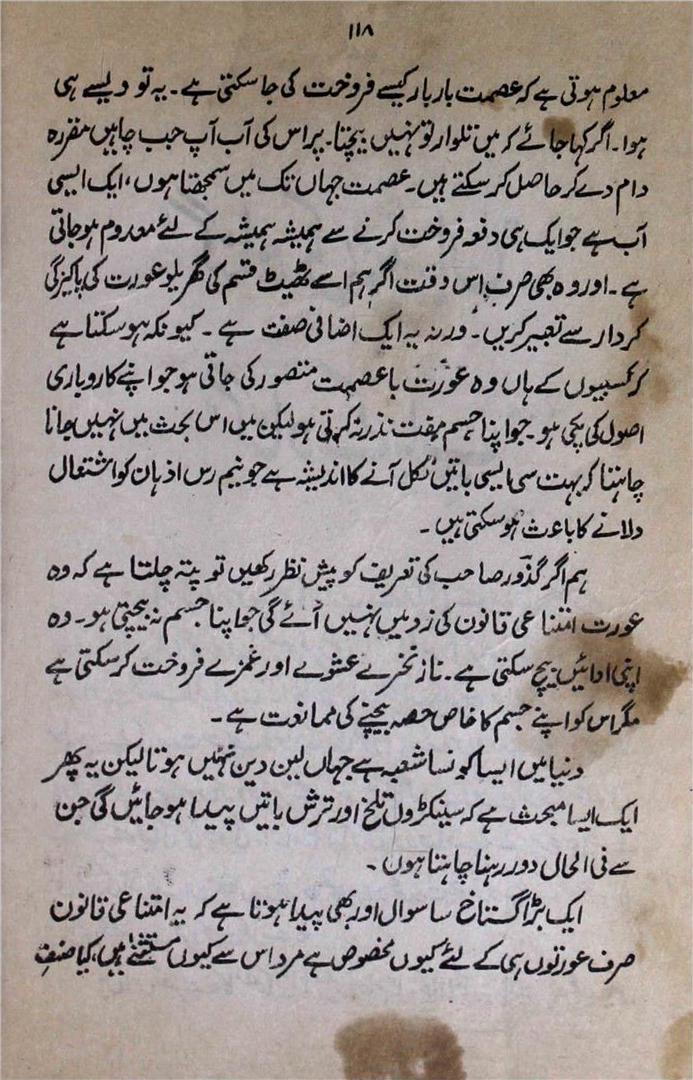 ۱۱۸
معلوم ہوتی ہے کہ عصمت بار بار کیسے فروخت کی جا سکتی ہے۔ یہ تو ویسے ہی
ہوا۔ اگر کہا جائے کہ میں تلوار تو نہیں بیچتا۔ پر اس کی آب آپ جب چاہیں مقررہ
دام دے کر حاصل کر سکتے ہیں۔ عصمت جہاں تک میں سمجھتا ہوں، ایک ایسی
آب ہے جو ایک ہی دفعہ فروخت کرنے سے ہمیشہ ہمیشہ کے لئے معدوم ہو جاتی
ہے۔ اور وہ بھی صرف اس وقت اگر ہم اسے ٹھیٹ قسم کی گھریلو عورت کی پاکیزگی
کردار سے تعبیر کریں۔ ورنہ یہ ایک اضافی صفت ہے۔ کیونکہ ہو سکتا ہے
کہ کسبیوں کے ہاں وہ عورت با عصمت متصور کی جاتی ہو جو اپنے کاروباری
اصول کی پکی ہو۔ جو اپنا جسم مفت نذر نہ کرتی ہو لیکن میں اس بحث میں نہیں جانا
چاہتا کہ بہت سی ایسی باتیں نکل آنے کا اندیشہ ہے جو نیم رس اذہان کو اشتعال
دلانے کا باعث ہو سکتی ہیں۔
ہم اگر گذور صاحب کی تعریف کو پیش نظر رکھیں تو پتہ چلتا ہے کہ وہ
عورت امتناعی قانون کی زد میں نہیں آئے گی جو اپنا جسم نہ بیچتی ہو۔ وہ
اپنی ادائیں بیچ سکتی ہے۔ ناز نخرے عشوے اور غمزے فروخت کر سکتی ہے
مگر اس کو اپنے جسم کا خاص حصہ بیچنے کی ممانعت ہے۔
دنیا میں ایسا کونسا شعبہ ہے جہاں لین دین نہیں ہوتا لیکن یہ پھر
ایک ایسا مبحث ہے کہ سینکڑوں تلخ اور ترش باتیں پیدا ہو جائیں گی جن
سے فی الحال دور رہنا چاہتا ہوں۔
ایک بڑا گستاخ سا سوال اور بھی پیدا ہوتا ہے کہ یہ امتناعی قانون
صرف عورتوں ہی کے لئے کیوں مخصوص ہے مرد اس سے کیوں مستثنےٰ ہیں، کیا صنفِ